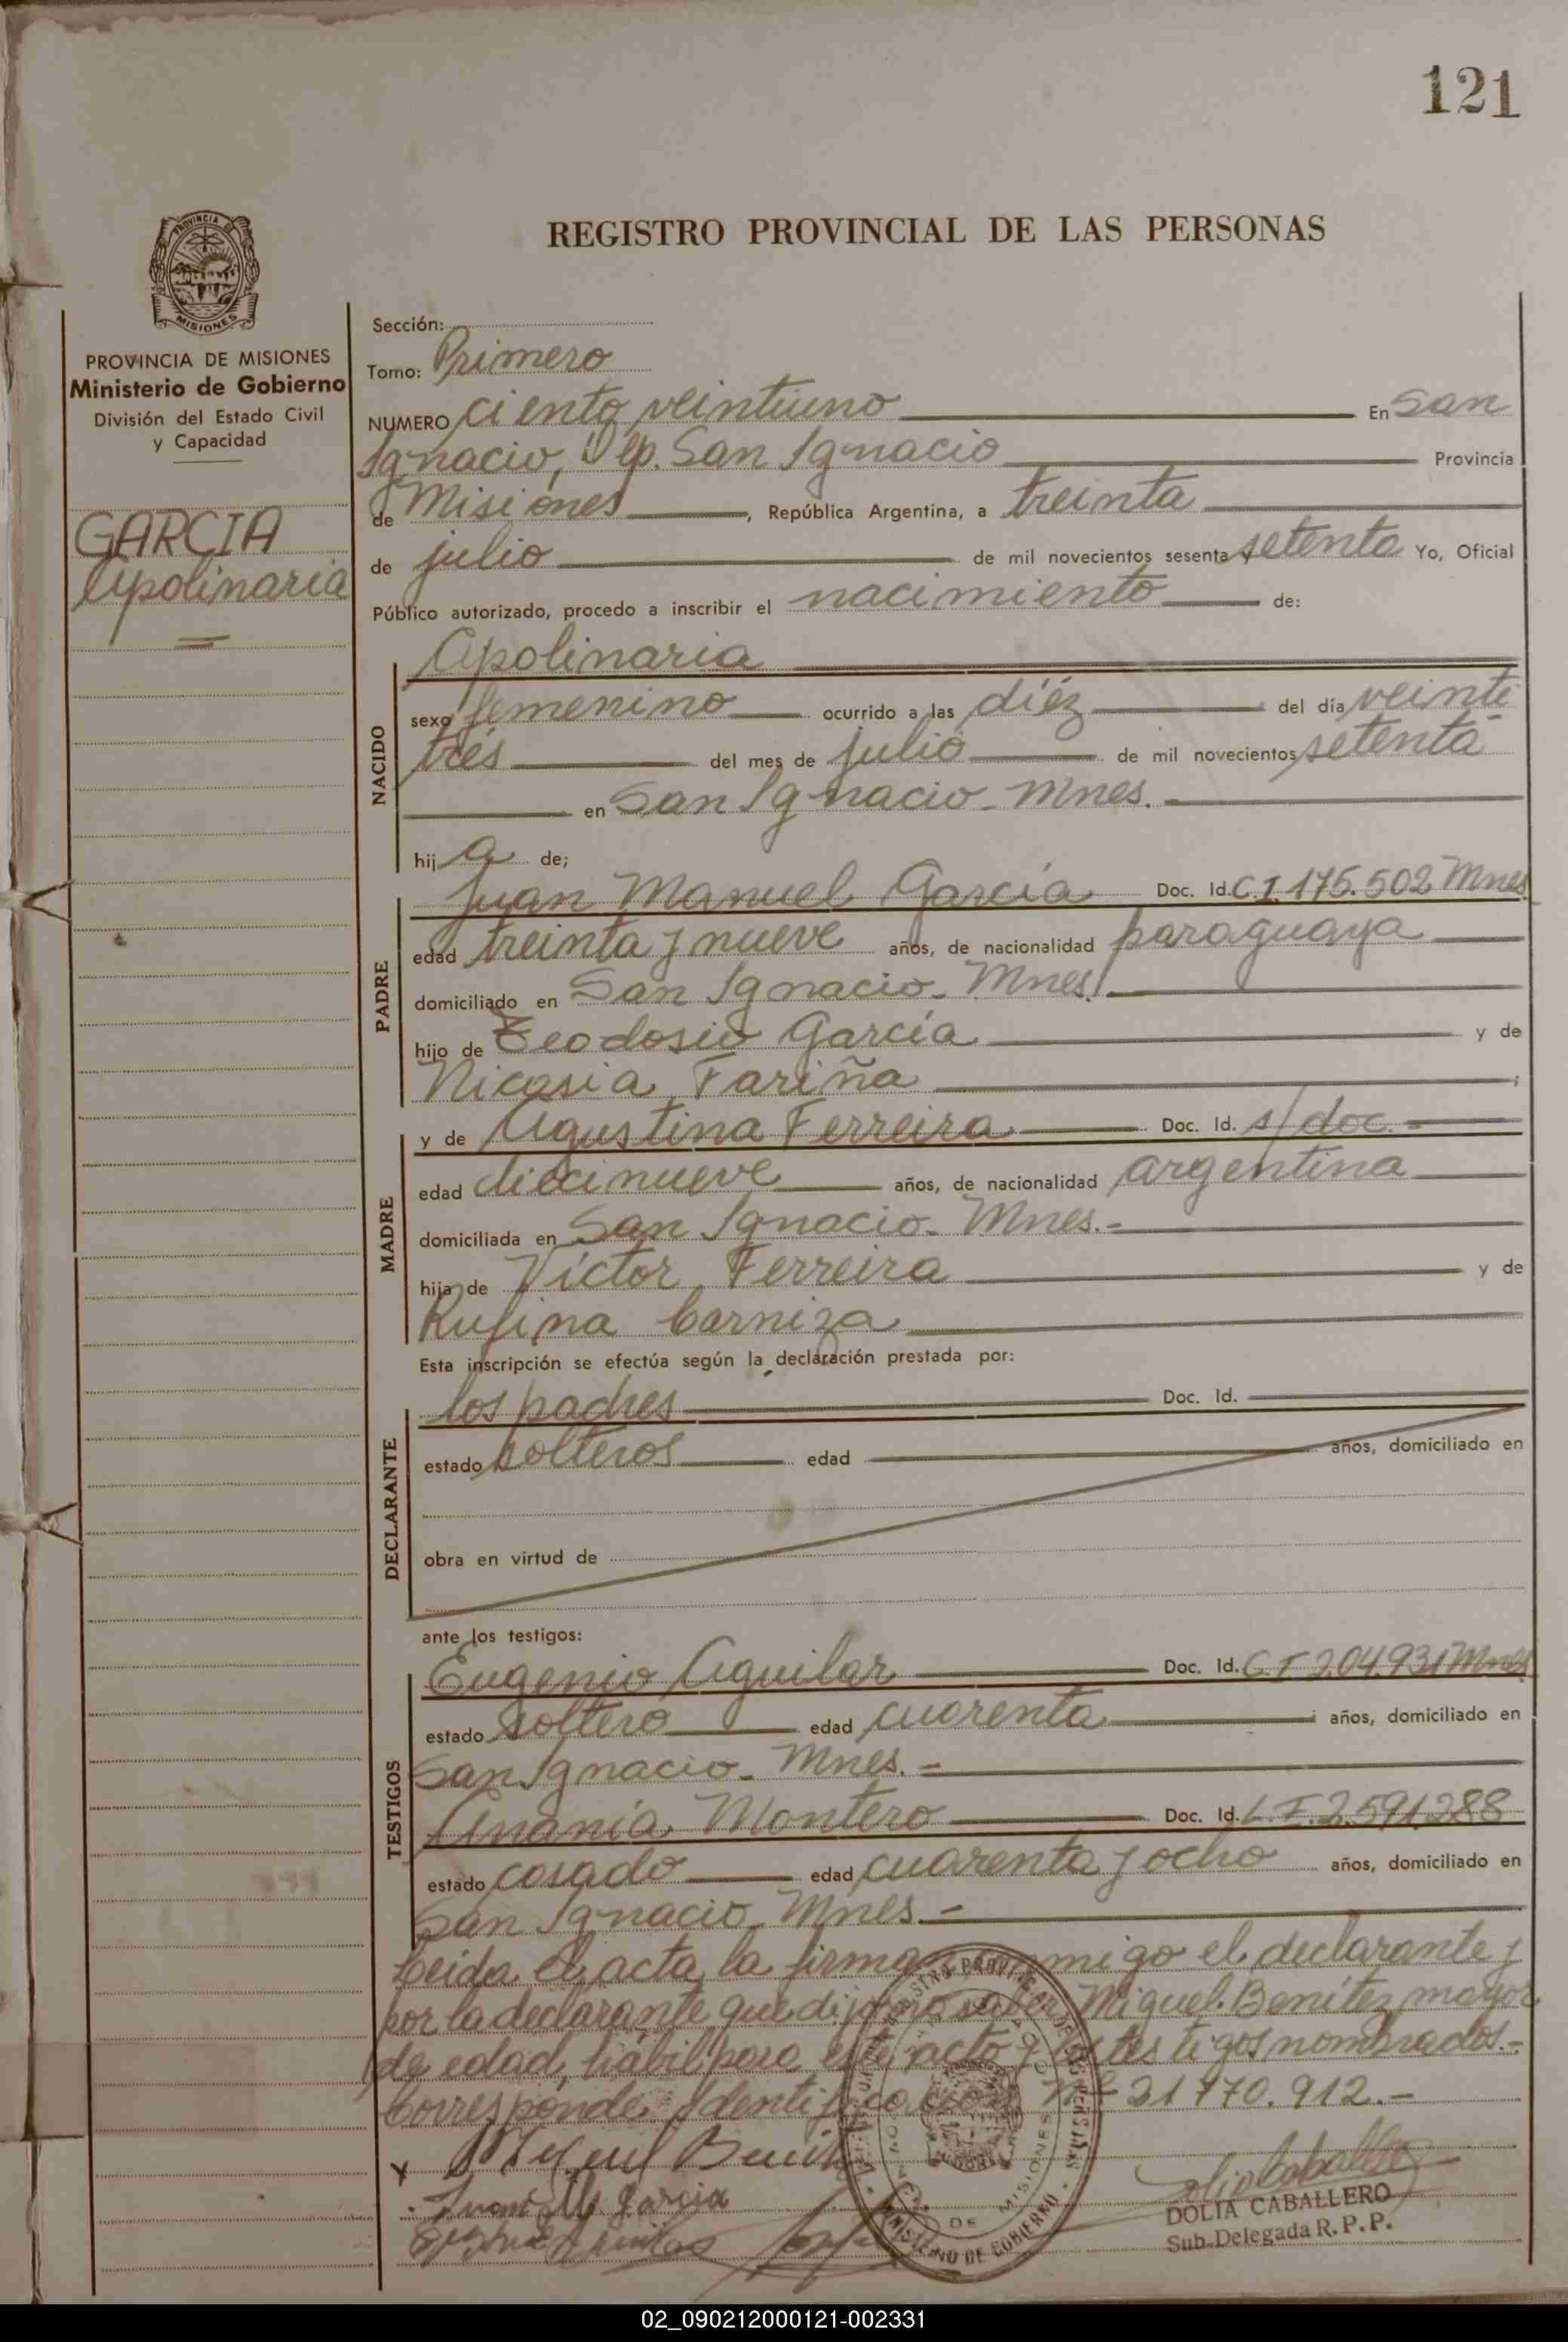 121
PROVINCIA
MISIONES
REGISTRO PROVINCIAL DE LAS PERSONAS
PROVINCIA DE MISIONES
Ministerio de Gobierno
División del Estado Civil
y Capacidad
GARCIA
Apolinaria
Sección:
Tomo: Primero
NUMERO ciento veintiuno En San
Ignacio, Dep. San Ignacio Provincia
de Misiones, República Argentina, a treinta
de julio de mil novecientos sesenta y setenta Yo, Oficial
Público autorizado, procedo a inscribir el nacimiento de:
NACIDO
Apolinaria
sexo femenino ocurrido a las diéz del día veinti
trés del mes de julio de mil novecientos setenta
en San Ignacio - Mnes.
hij a de;
PADRE
Juan Manuel García Doc. Id. C.I. 175.502 Mnes
edad treinta y nueve años, de nacionalidad paraguaya
domiciliado en San Ignacio - Mnes.
hijo de Teodosio García y de
Nicasia Fariña ;
MADRE
y de Agustina Ferreira Doc. Id. s/doc. -
edad diecinueve años, de nacionalidad argentina
domiciliada en San Ignacio - Mnes. -
hija de Víctor Ferreira y de
Rufina Carniza
Esta inscripción se efectúa según la declaración prestada por:
DECLARANTE
los padres Doc. Id.
estado solteros edad años, domiciliado en
obra en virtud de
ante los testigos:
TESTIGOS
Eugenio Aguilar Doc. Id. C.I. 204.931 Mnes
estado soltero edad cuarenta años, domiciliado en
San Ignacio - Mnes. -
Anania Montero Doc. Id. L.E. 2.591.288
estado casado edad cuarenta y ocho años, domiciliado en
San Ignacio - Mnes. -
Leida el acta, la firma conmigo el declarante y
por la declarante que dijo no saber Miguel Benítez mayor
de edad, hábil para este acto y los testigos nombrados. -
Corresponde Identificación Nº 21.770.912. -
Miguel Benítez
Juan M. García
DE
MISIONES
MINISTERIO DE GOBIERNO
DOLIA CABALLERO
Sub-Delegada R. P. P.
02_090212000121-002331